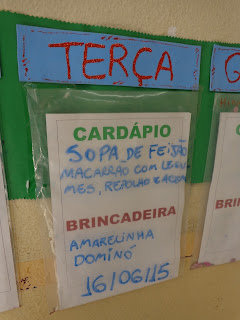 TERÇA
CARDÁPIO
SOPA DE FEIJÃO
MACARRÃO COM LEGU
MES, REPOLHO E
BRINCADEIRA
AMARELINHA
DOMINÓ
16/06/15
Q